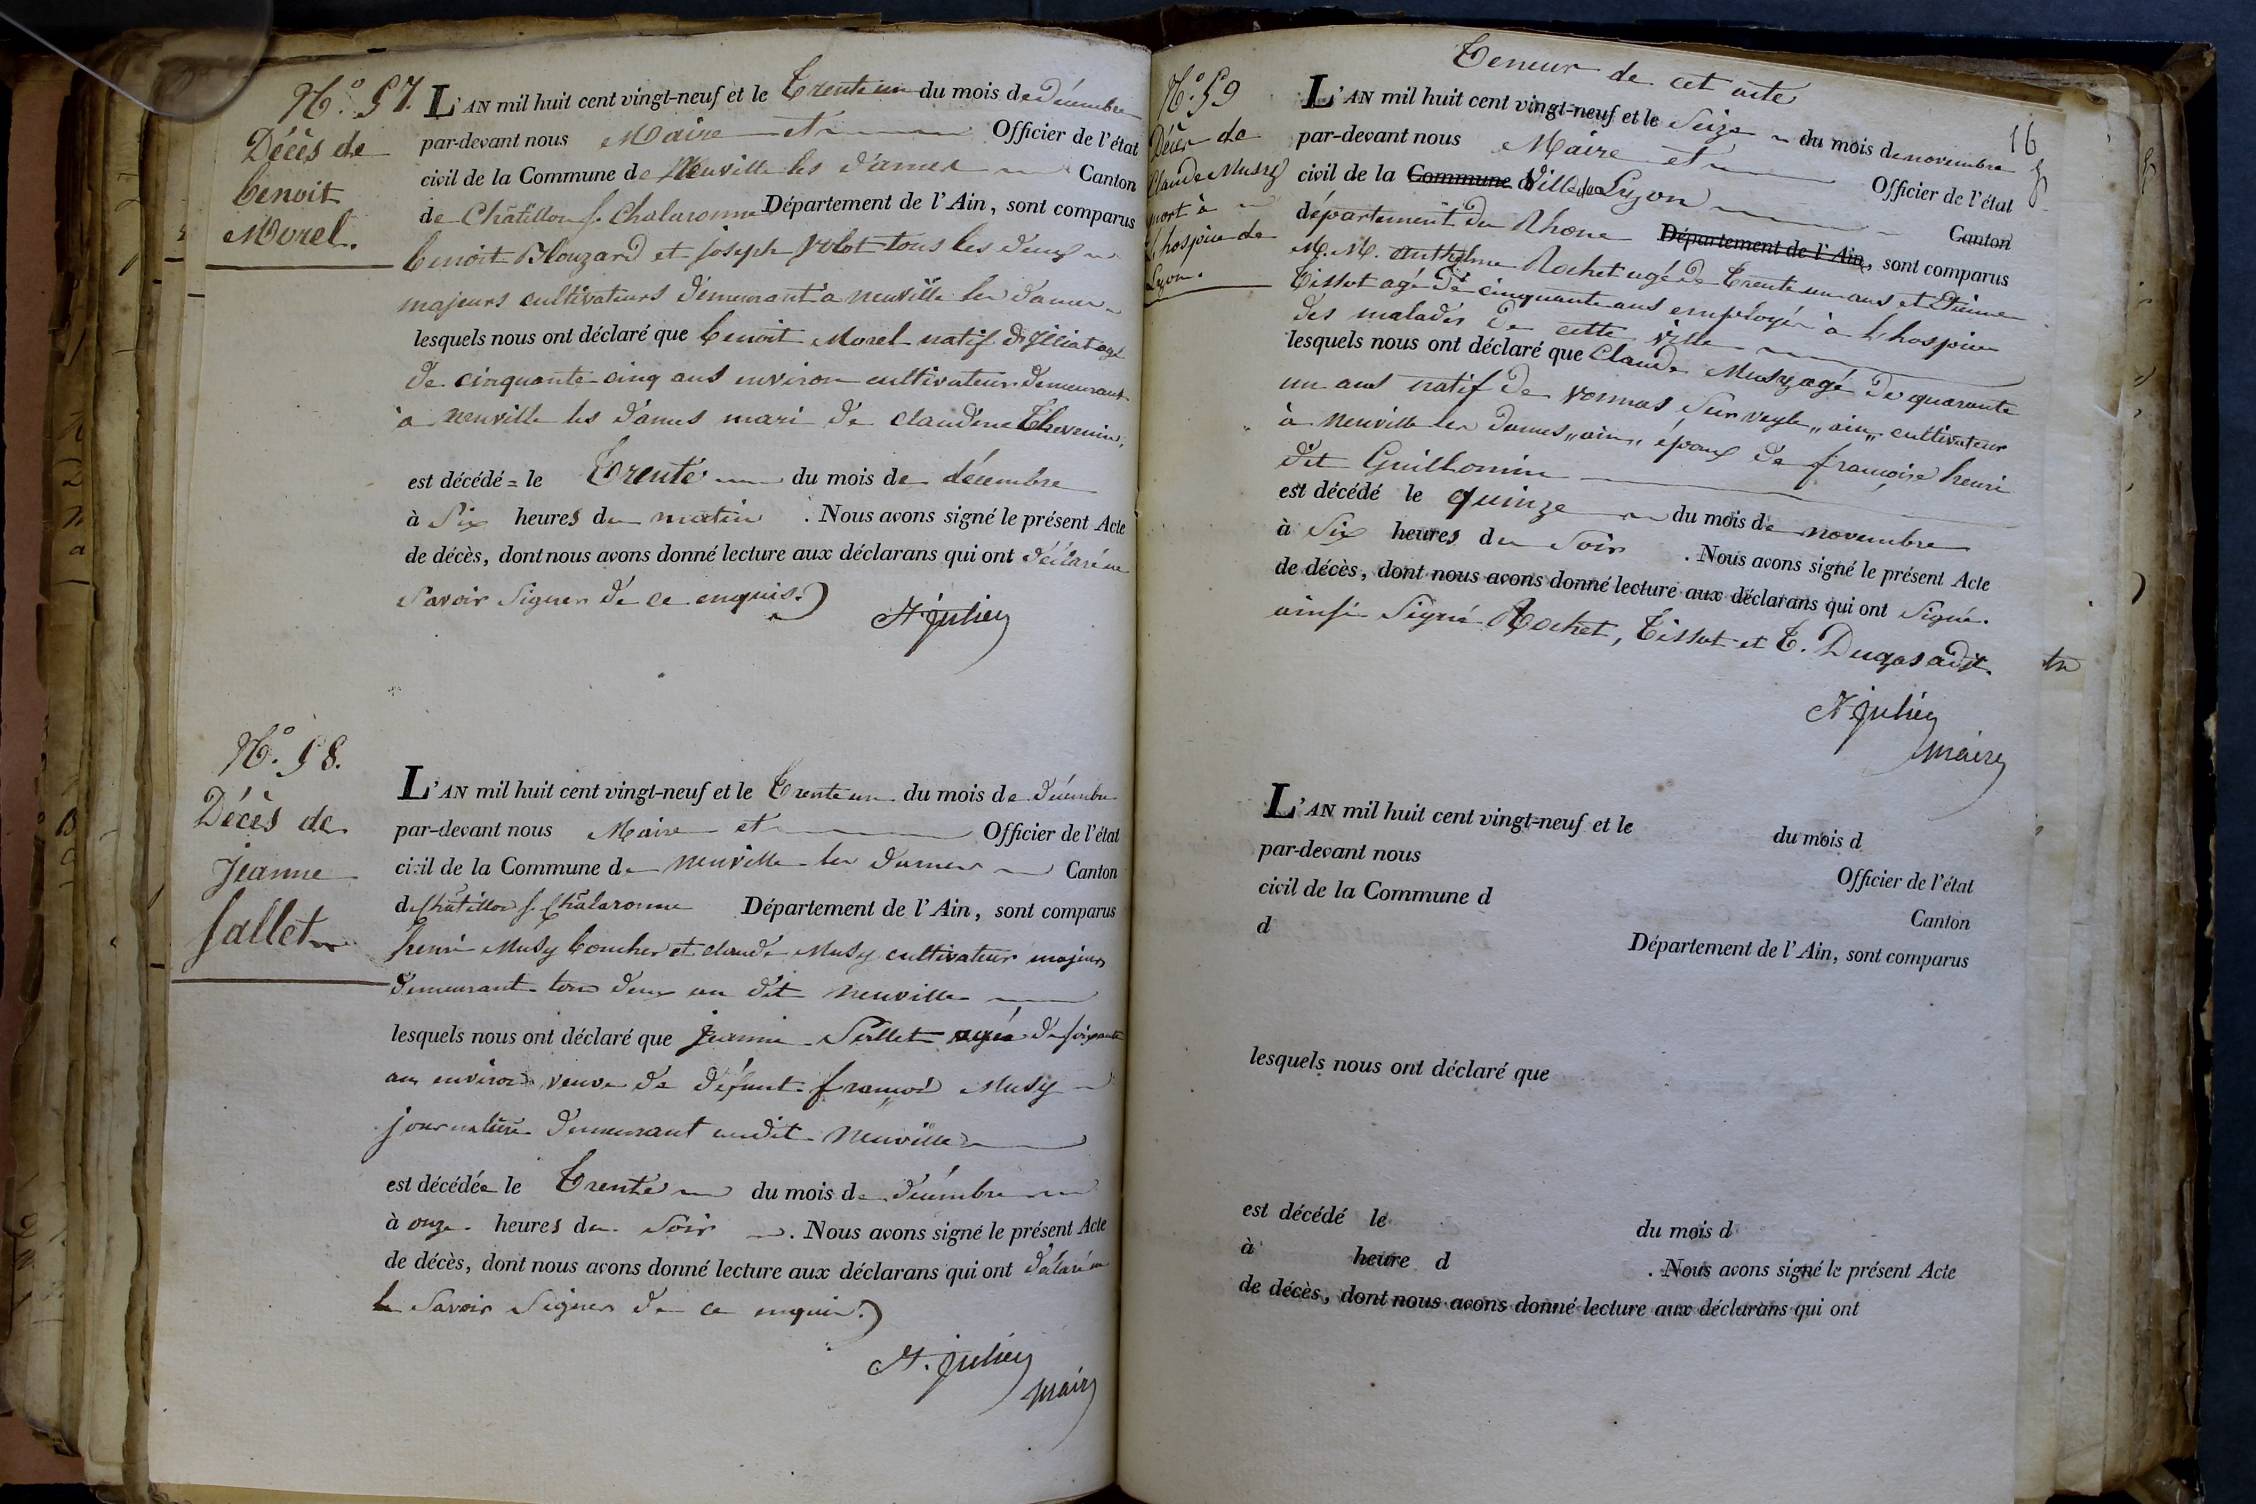 N.° 57.
Décès de
benoit
Morel.
L'AN mil huit cent vingt-neuf et le Trente un du mois de décembre
par-devant nous Maire et Officier de l'état
civil de la Commune de Neuville les dames Canton
de Châtillon s. Chalaronne Département de l'Ain, sont comparus
benoit Blouzard et joseph volot tous les deux
majeurs cultivateurs demeurant a neuville les dames
lesquels nous ont déclaré que benoit Morel natif d'illiat agé
de cinquante cinq ans environ cultivateur demeurant
à neuville les dames mari de claudine Thevenin,
est décédé = le Trente du mois de décembre
à Six heures du matin . Nous avons signé le présent Acte
de décès, dont nous avons donné lecture aux déclarans qui ont déclaré ne
Savoir Signer de ce enquis.
julien
N.° 58.
Décès de
Jeanne
Sallet
L'AN mil huit cent vingt-neuf et le Trente un du mois de décembre
par-devant nous Maire et Officier de l'état
civil de la Commune de neuville les dames Canton
de Châtillon s. Châlaronne Département de l'Ain, sont comparus
henri Musy boucher et claude Musy cultivateur majeurs
demeurant tous deux au dit neuville
lesquels nous ont déclaré que jeanne Sallet agée de soixante
ans environ veuve de défunt françois Musy
journalière demeurant audit neuville
est décédée le Trente du mois de décembre
à onze heures du Soir . Nous avons signé le présent Acte
de décès, dont nous avons donné lecture aux déclarans qui ont déclaré ne
le Savoir Signer de ce enquis.
julien
maire
Teneur de cet acte
16
N.° 59
Décès de
Claude Musy
mort à
l'hospice de
Lyon.
L'AN mil huit cent vingt-neuf et le Seize du mois de novembre
par-devant nous Maire et Officier de l'état
civil de la Commune d Ville de Lyon Canton
département du Rhone Département de l'Ain, sont comparus
M. M. anthelme Rochet agé de Trente un ans et Etienne
Tissot agé de cinquante ans employés à l'hospice
des malades de cette ville
lesquels nous ont déclaré que Claude Musy agé de quarante
un ans natif de vonnas Sur veyle „ ain „ cultivateur
à Neuville les dames „ ain „ époux de françoise henri
dit Guillomin
est décédé le quinze du mois de novembre
à Six heures du Soir . Nous avons signé le présent Acte
de décès, dont nous avons donné lecture aux déclarans qui ont Signé.
ainsi Signé Rochet, Tissot et T. Dugas adjt
julien
maire
L'AN mil huit cent vingt-neuf et le du mois d
par-devant nous Officier de l'état
civil de la Commune d Canton
d Département de l'Ain, sont comparus
lesquels nous ont déclaré que
est décédé le du mois d
à heure d . Nous avons signé le présent Acte
de décès, dont nous avons donné lecture aux déclarans qui ont